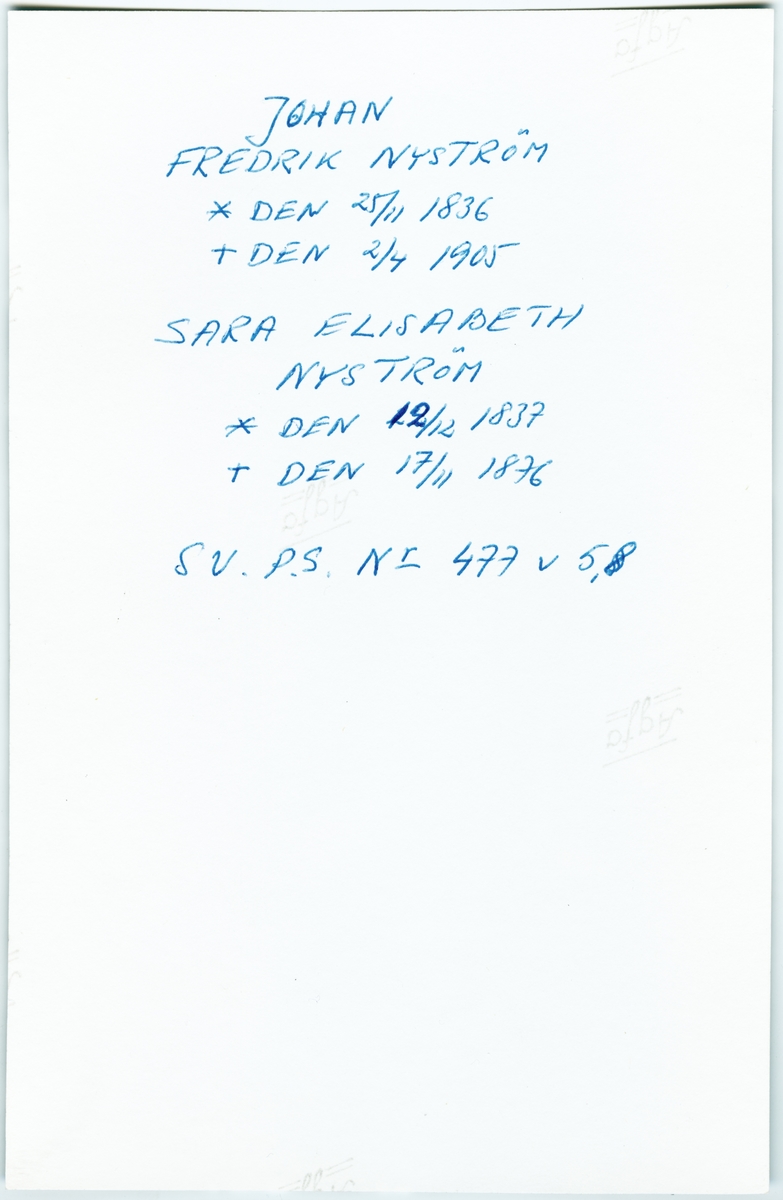 Agfa
JOHAN
FREDRIK NYSTRÖM
* DEN 25/11 1836
† DEN 2/4 1905
SARA ELISABETH
NYSTRÖM
* DEN 12/12 1837
† DEN 17/11 1876
Agfa
SV. P.S. Nr 477 v 5,8
Agfa
Agfa